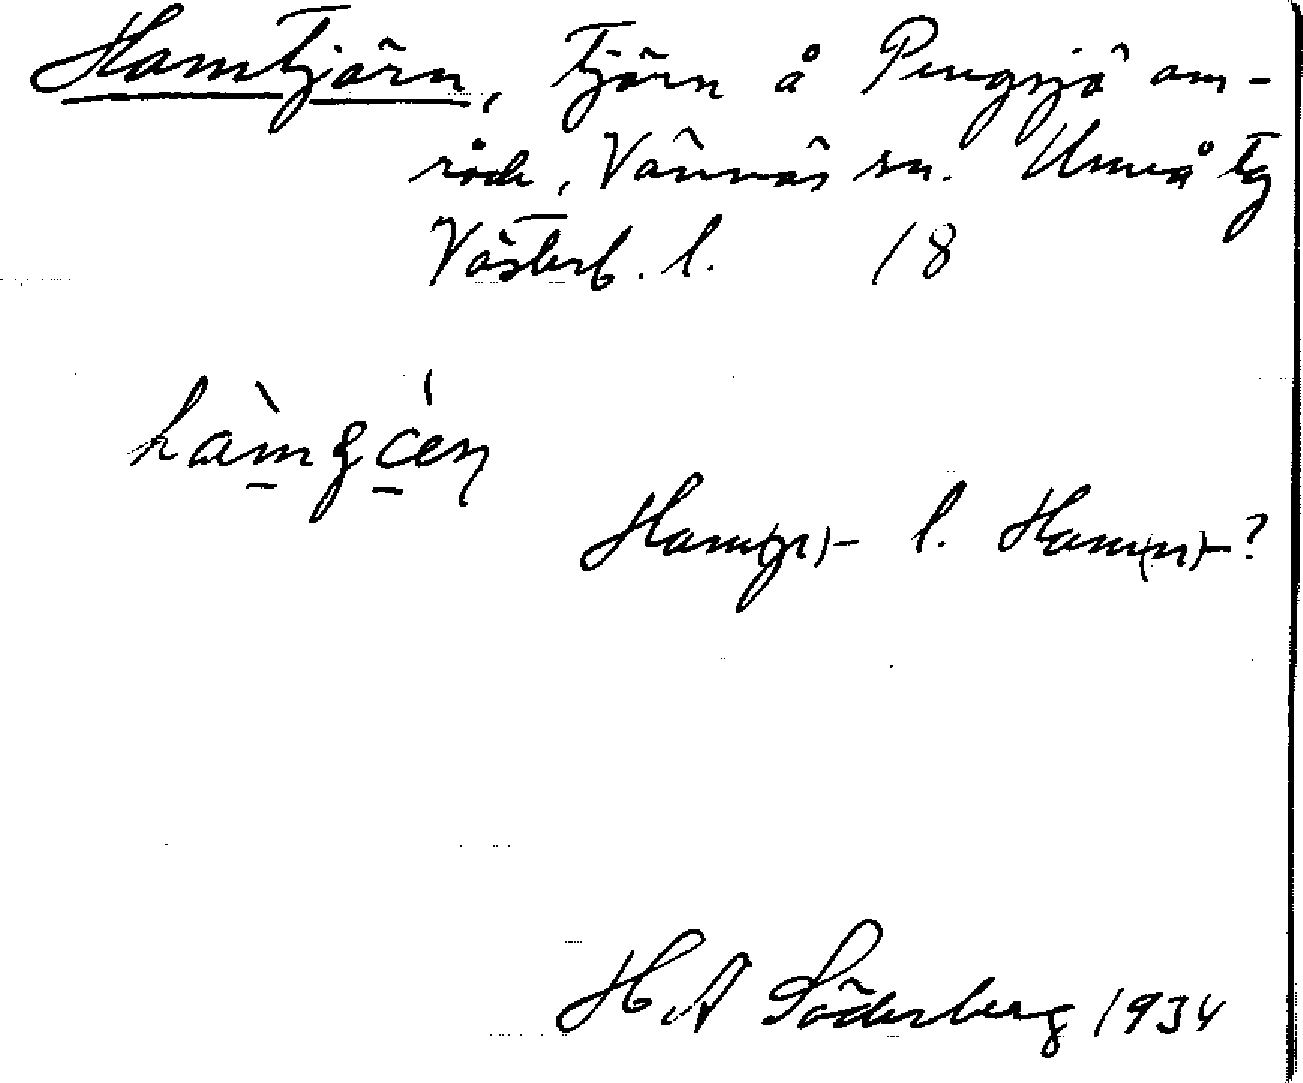 Hamtjärn, Tjärn å Pengsjö om-
råde, Vännäs sn. Umeå tg
Västerb. l. 18
Ham(p)- l. Ham(n)-?
H A Söderberg 1934